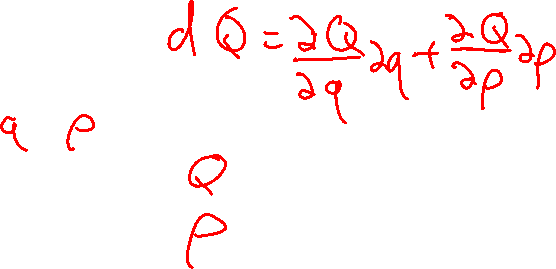 d Q = ∂Q/∂q ∂q + ∂Q/∂p ∂p
q p
Q
P